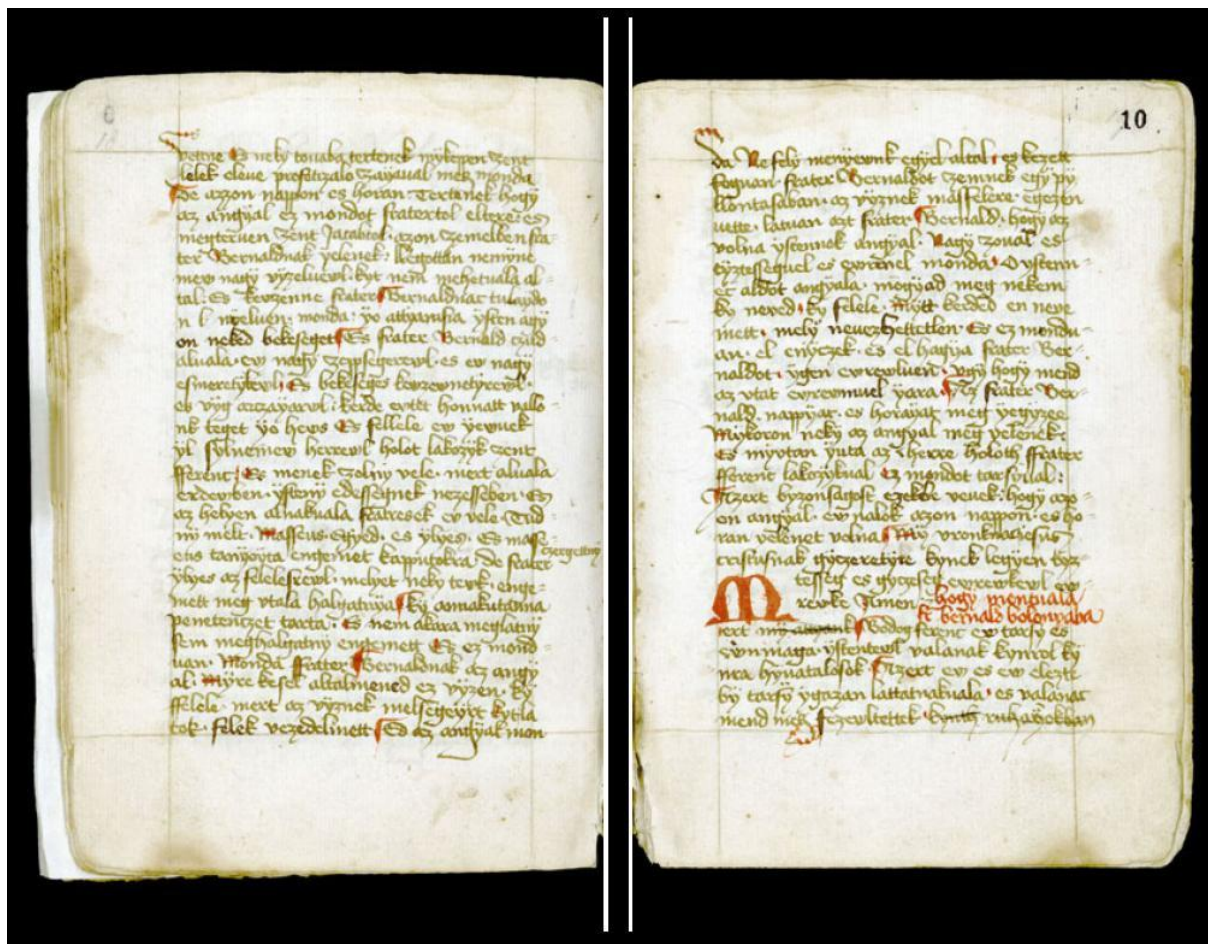 vettne Es neky touaba tertenek mykeppen zent
lelek eleue profetizalo zayaual mek monda
De azzon nappon es horan Tertenek hogy
az angyal ez mondot fratertol eltere es
megteruen zent Jacabtol azon zemelben fra
ter Bernaldnak yelenek : Legottan nemyne
mew nagy vyzeluewl kyt nem mehetuala al
tal . Es kewzenne frater Bernaldnac tulaydo
n l nyeluen . monda : yo attyamfia ysten agy
on neked bekeseget Es frater Bernald czud
aluala . ew nagy zepsegerewl . es ew nagy
esmeretykewl . Es bekeseges kewzewnetyrewl .
es vyg orczayarwl : kerde ewtet honnatt vallo
nk teget yo hews Es fellele ew yewuek
yl sylnemew herrewl holot lakozyk zent
fferent . Es menek zolny vele . mert aluala
erdewben . ysteny edessegnek nezesseben . Es
az helyen alnakuala fratresek ew vele . Tud
ny melt . Masseus . Egyed . es ylyes . Es mass
eus tanyoyta engemet kappugokra de frater
czergettny
ylyes az felelesrewl . melyet neky tewk . enge
mett meg vtala halgatnya ky annakutanna
penetenczet tarta . Es nem akara meglatny
sem meghalgatny engemett Es ez mond
uan . Monda frater Bernaldnak az angy
al . Myre kesel altalmened ez vyzen . ky
ffelele . mert az vyznek melsegeyrt kytla
tok . felek vezedelmett Es az angyal mon
10
da Ne fely menyewnk egyel altal . es kezett
foguan frater Bernaldot zemnek egy py
llantasaban . az vyznek masfelere egezen
vette . latuan azt frater Bernald . hogy az
volna ystennek angyal . Nagy zoual es
tyztesseguel es ewremel monda . O ysten
ek aldot angyala . mogyad meg nekem
ky neued . ky felele . Mytt kerded en neue
mett . mely neuezhettetlen . Es ez mondu
an . el enyczek . es el hagya frater Ber
naldot . ygen ewrewluen . vgy hogy mend
az vtat ewremmuel yara . Es frater Ber
nald . nappyat . es horayat meg yegyzee
Mykoron neky az angyal meg yelenek :
Es myutan yuta az herre holoth ffrater
fferent lakozykual ez mondot tarsyual :
Azert byzonsagost ezekbe veuek : hogy azo
on angyal . ew nalek azon nappon . es ho
ran yelenet volna My vronk iesus
cristusnak gyczeretyre kynek legyen tyz
tesseg es gyczeseg ewrewkewl ew
rewke Amen hogy mentuala
fr bernald bolonyaba
Mert Bodog ferent ew tarsy es
ewnmaga . ystentewl valanak kynrol ky
nra hyuatalosok Azert ew es ew elezte
by tarsy ygazan lattatnakuala . es valanac
mend meg fezewltettek ruhaiokban